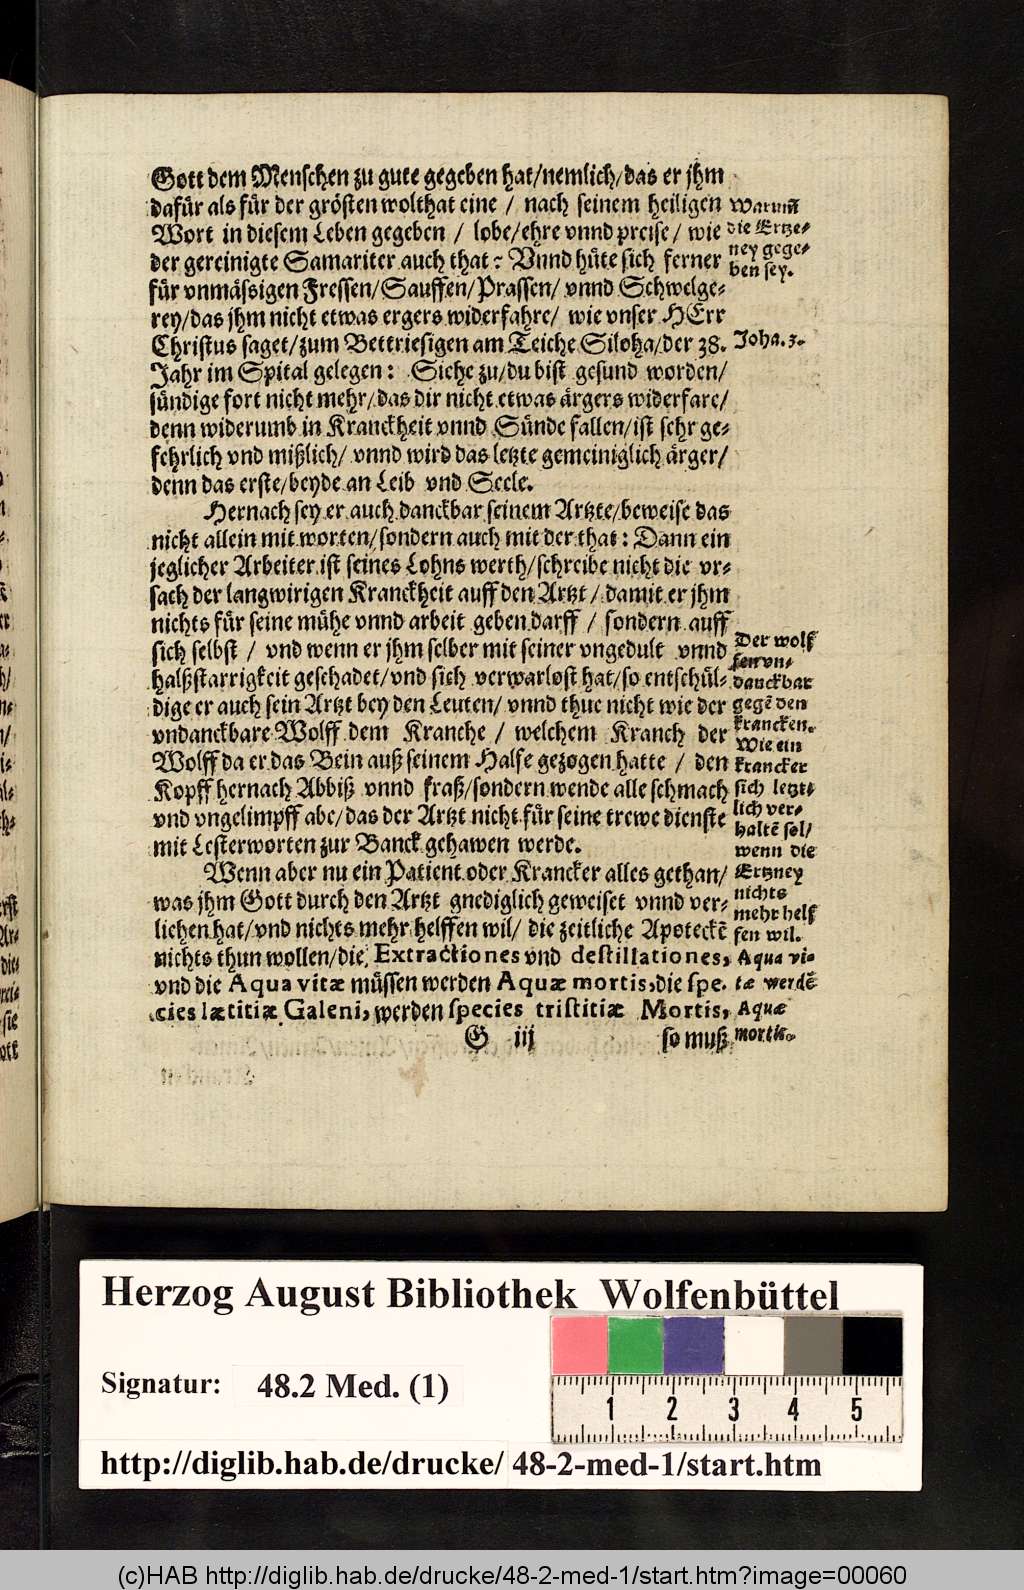 Gott dem Menschen zu gute gegeben hat/nemlich/das er jhm
dafür als für der grösten wolthat eine / nach seinem heiligen
Wort in diesem Leben gegeben / lobe/ehre vnnd preise / wie
der gereinigte Samariter auch that: Vnnd hüte sich ferner
für vnmässigen Fressen/Sauffen/Prassen/ vnnd Schwelge-
rey/das jhm nicht etwas ergers widerfahre/ wie vnser HErr
Christus saget/zum Bettriesigen am Teiche Siloha/der 38.
Jahr im Spital gelegen: Siehe zu/du bist gesund worden/
sündige fort nicht mehr/das dir nicht etwas ärgers widerfare/
denn widerumb in Kranckheit vnnd Sünde fallen/ist sehr ge-
fehrlich vnd mißlich/ vnnd wird das letzte gemeiniglich ärger/
denn das erste/beyde an Leib vnd Seele.
Warum̃
die Ertze-
ney gege-
ben sey.
Joha. 3.
Hernach sey er auch danckbar seinem Artzte/beweise das
nicht allein mit worten/sondern auch mit der that: Dann ein
jeglicher Arbeiter ist seines Lohns werth/schreibe nicht die vr-
sach der langwirigen Kranckheit auff den Artzt / damit er jhm
nichts für seine mühe vnnd arbeit geben darff / sondern auff
sich selbst / vnd wenn er jhm selber mit seiner vngedult vnnd
halßstarrigkeit geschadet/vnd sich verwarlost hat/so entschül-
dige er auch sein Artzt bey den Leuten/ vnnd thue nicht wie der
vndanckbare Wolff dem Kranche / welchem Kranch der
Wolff da er das Bein auß seinem Halse gezogen hatte / den
Kopff hernach Abbiß vnnd fraß/sondern wende alle schmach
vnd vngelimpff abe/das der Artzt nicht für seine trewe dienste
mit Lesterworten zur Banck gehawen werde.
Der wolf
sey vn-
danckbar
gegẽ den
krancken.
Wie ein
krancker
sich letzt-
lich ver-
haltẽ sol/
wenn die
Ertzney
nichts
mehr helf
fen wil.
Wenn aber nu ein Patient oder Krancker alles gethan/
was jhm Gott durch den Artzt gnediglich geweiset vnnd ver-
liehen hat/vnd nichts mehr helffen wil/ die zeitliche Apoteckẽ
nichts thun wollen/die Extractiones vnd destillationes,
vnd die Aqua vitæ müssen werden Aquæ mortis,die spe-
cies lætitiæ Galeni, werden species tristitiæ Mortis,
Aqua vi-
tæ werdẽ
Aquæ
mortis.
G iij
so muß
Herzog August Bibliothek Wolfenbüttel
Signatur: 48.2 Med. (1)
1 2 3 4 5
http://diglib.hab.de/drucke/ 48-2-med-1/start.htm
(c)HAB http://diglib.hab.de/drucke/48-2-med-1/start.htm?image=00060